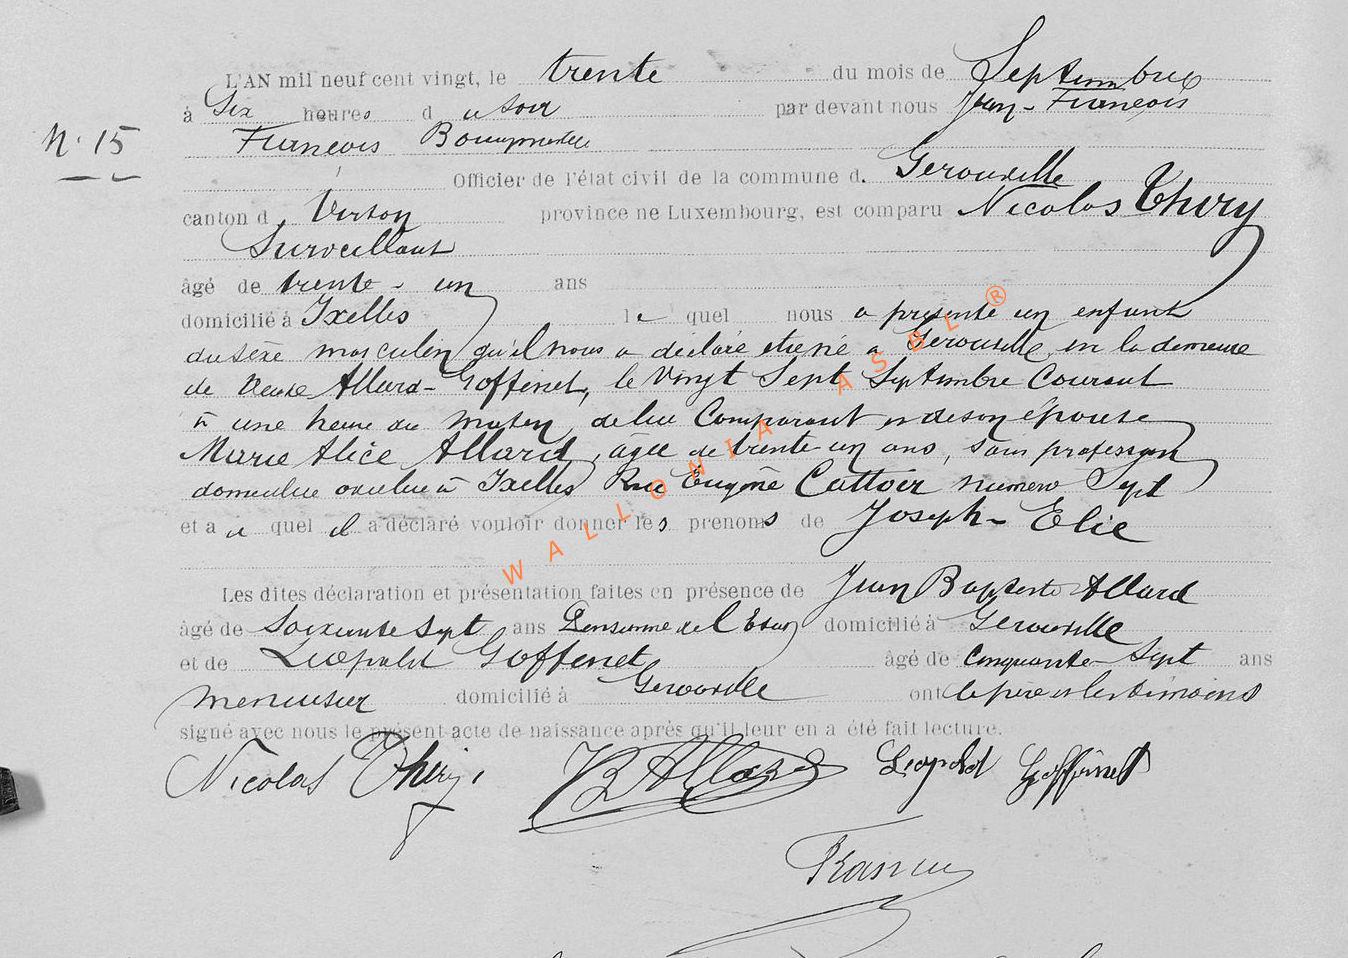 L'AN mil neuf cent vingt, le trente du mois de Septembre
à Six heures du soir par devant nous Jean-François
N° 15
François
Officier de l'état civil de la commune d. Gérouville
canton d Virton province de Luxembourg, est comparu Nicolas Thiry
Surveillant
âgé de trente-un ans
domicilié à Ixelles lequel nous a présenté un enfant
du sexe masculin qu'il nous a déclaré être né à Gérouville, en la demeure
de Veuve Allard-Goffinet, le Vingt Sept Septembre Courant
à une heure du matin, de lui Comparant et de son épouse
Marie Alice Allard, âgée de trente un ans, sans profession
domiciliée avec lui à Ixelles Rue Eugène Cattoir numéro Sept
et a u quel il a déclaré vouloir donner les prenoms de Joseph-Elie
Les dites déclaration et présentation faites en présence de Jean Baptiste Allard
âgé de Soixante sept ans Pensionné de l'Etat domicilié à Gérouville
et de Léopold Goffinet âgé de Cinquante-Sept ans
menuisier domicilié à Gérouville ont le père et les témoins
signé avec nous le présent acte de naissance après qu'il leur en a été fait lecture.
Nicolas Thiry. JB Allard Léopold Goffinet
WALLONIA ASBL ®